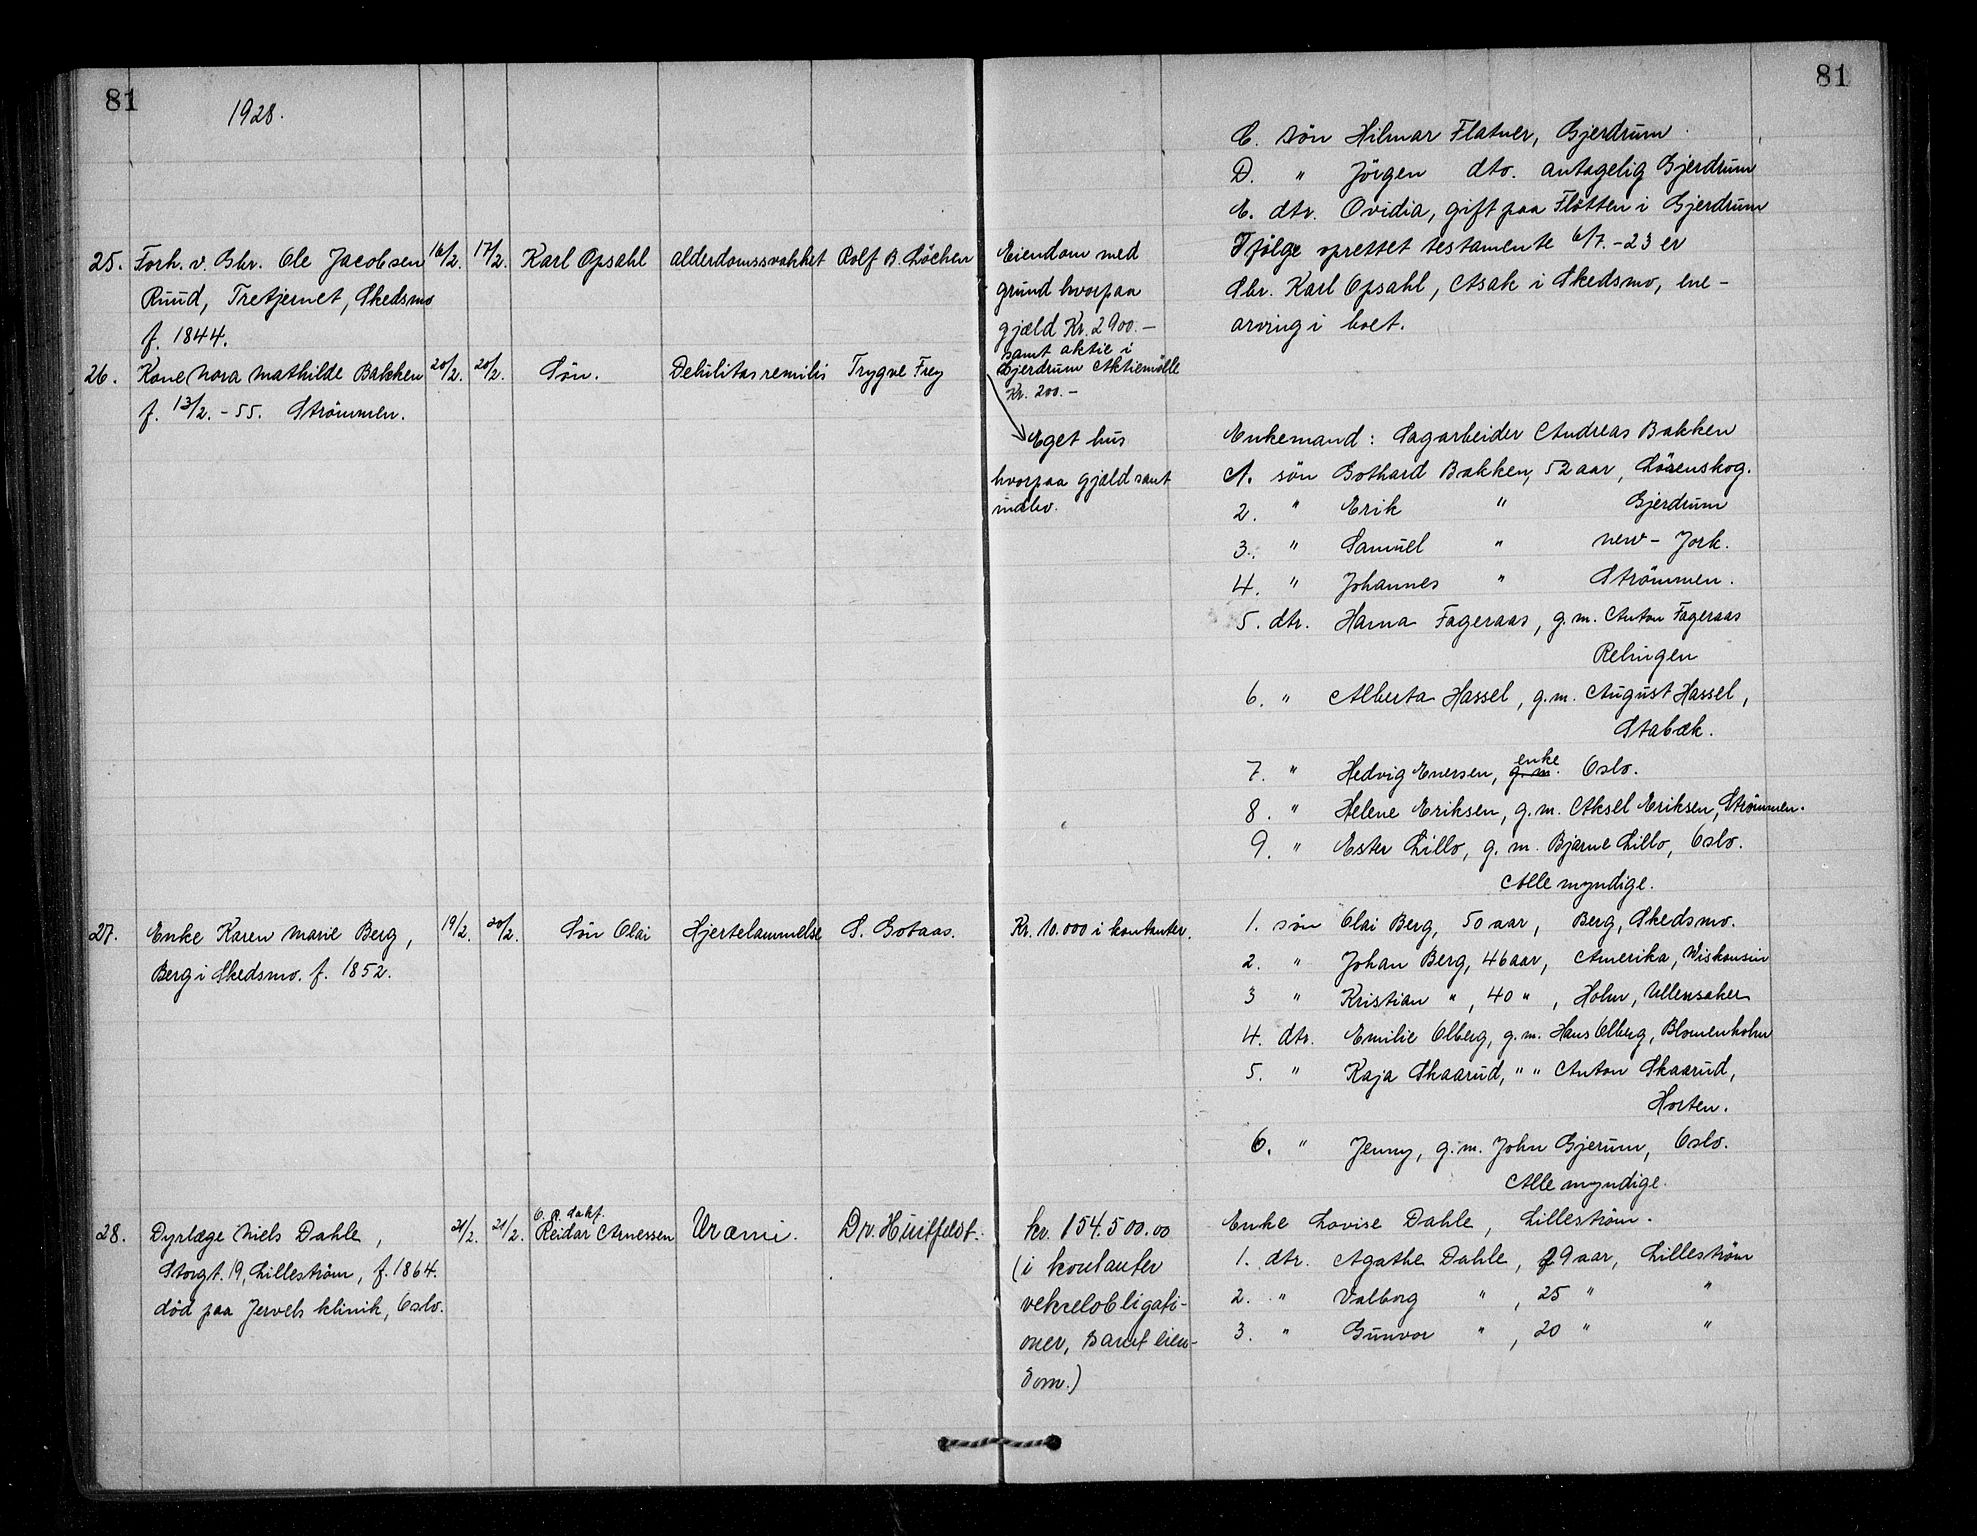 81
1928.
25. Forh. v. Gbr. Ole Jacobsen 16/2. 17/2. Karl Opsahl alderdomssvakhet Rolf B. Löchen
Ruud, Tretjernet, Skedsmo
f. 1844.
26. Kone Nora Mathilde Bakken 20/2. 20/2. Sön. Debilitas senilis Trygve Frey
f. 13/2. - 55. Strömmen.
27. Enke Karen Marie Berg, 19/2. 20/2. Sön Olai Hjertelammelse S. Gotaas.
Berg i Skedsmo. f. 1852.
28. Dyrlæge Niels Dahle, 21/2. 21/2. Reidar Arnessen Uræmi. Dr. Huitfeldt.
Storgt. 19, Lilleström, f. 1864.
död paa Jervels klinik, Oslo.
81
Eiendom med
grund hvorpaa
gjæld Kr. 2900.—
samt aktie i
Gjerdrum Aktiemölle
Kr. 200.—
Eget hus
hvorpaa gjæld samt
indbo.
Kr. 10.000 i kontanter.
kr. 154.500.00
(i kontanter
vekselobligati-
oner, samt eien-
dom.)
C. sön Hilmar Flatner, Gjerdrum
D. " Jörgen dto. antagelig Gjerdrum
E. dtr. Ovidia, gift paa Flötten i Gjerdrum
Ifölge oprettet testamente 6/7. - 23 er
Gbr. Karl Opsahl, Asak i Skedsmo, ene-
arving i boet.
Enkemand: Sagarbeider Andreas Bakken
1. sön Gothard Bakken, 52 aar, Lörenskog.
2. " Erik " Gjerdrum
3. " Samuel " New-Jork.
4. " Johannes " Strömmen.
5. dtr. Hanna Fageraas, g.m. Anton Fageraas
Relingen
6. " Alberta Hassel, g.m. August Hassel,
Stabæk.
7. " Hedvig Enersen, g.m. enke Oslo.
8. " Helene Eriksen, g.m. Aksel Eriksen, Strömmen.
9. " Ester Lillo, g.m. Bjarne Lillo, Oslo.
Alle myndige.
1. sön Olai Berg, 50 aar, Berg, Skedsmo.
2. " Johan Berg, 46 aar, Amerika, Wiskonsin
3 " Kristian ", 40 ", Holm, Ullensaker
4. dtr. Emilie Olberg, g.m. Hans Olberg, Blomenholm
5. " Kaja Skaarud, " " Anton Skaarud,
Horten.
6. " Jenny, g.m. John Gjerum, Oslo.
Alle myndige.
Enke Lovise Dahle, Lilleström.
1. dtr. Agathe Dahle, 29 aar, Lilleström
2. " Valborg ", 25 " "
3. " Gunvor ", 20 " "